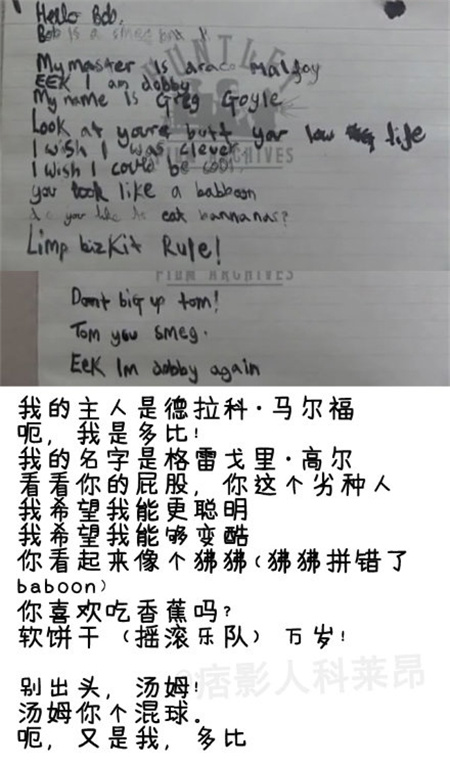 Hello Bob,
Bob is a smeg
My master is araco Malfoy
EEK I am dobby
My name is Greg Goyle
Look at youre butt you low life
I wish I was clever
I wish I could be cool,
you look like a babboon
eat bannanas?
Limp bizkit Rule!
Dont big up tom!
Tom you smeg.
EEK Im dobby again
我的主人是德拉科·马尔福
呃，我是多比！
我的名字是格雷戈里·高尔
看看你的屁股，你这个劣种人
我希望我能更聪明
我希望我能够变酷
你看起来像个狒狒（狒狒拼错了
baboon）
你喜欢吃香蕉吗？
软饼干（摇滚乐队）万岁！
别出头，汤姆！
汤姆你个混球．
呃，又是我，多比
HUNTLEY
FILM ARCHIVES
FILM ARCHIVES
@痞影人科莱昂